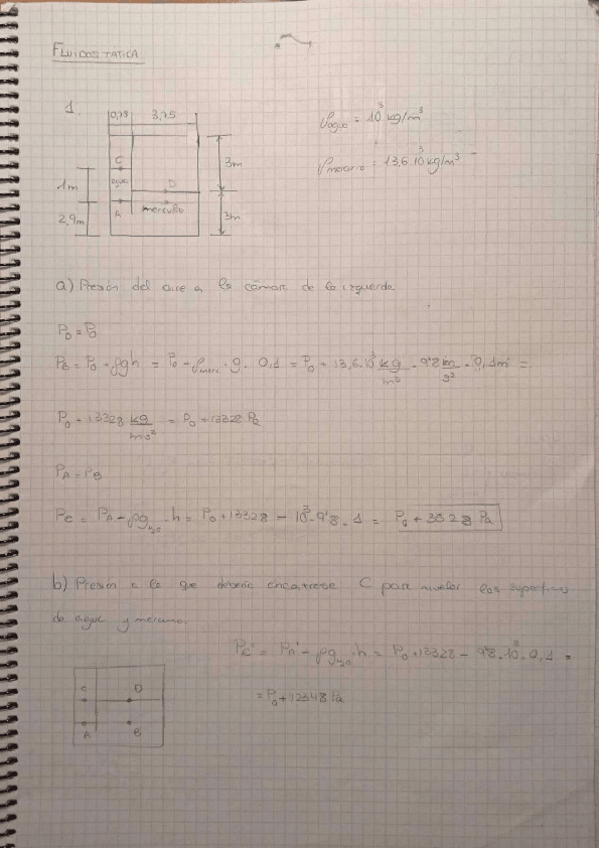 FLUIDOSTATICA
1.
0,75 3,75
ρagua = 10³ kg/m³
ρmercurio = 13,6·10³ kg/m³
C
3m
agua
D
1m
A mercurio
3m
2,9m
a) Presión del aire a la cámara de la izquierda.
P₀ = P₀
PB = P₀ + ρgh = P₀ + ρmerc · g · 0,1 = P₀ + 13,6·10³ kg/m³ · 9'8 m/s² · 0,1m =
P₀ + 13328 kg/ms² = P₀ + 13328 Pa
PA = PB
PC = PA - ρgH₂O · h = P₀ + 13328 - 10³ · 9'8 · 1 = P₀ + 3528 Pa
b) Presión a la que debería encontrarse C para nivelar las superficies
de agua y mercurio.
PC' = PA' - ρgH₂O · h = P₀ + 13328 - 9'8 · 10³ · 0,1 =
= P₀ + 12348 Pa
C D
A B